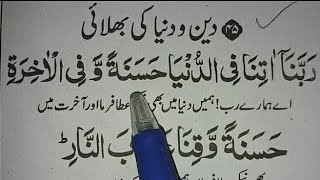 ۲۵ دین و دنیا کی بھلائی
رَبَّنَآ اٰتِنَا فِی الدُّنْیَا حَسَنَةً وَّ فِی الْاٰخِرَةِ
اے ہمارے رب! ہمیں دنیا میں بھی عطا فرما اور آخرت میں
حَسَنَةً وَّقِنَا النَّارِ